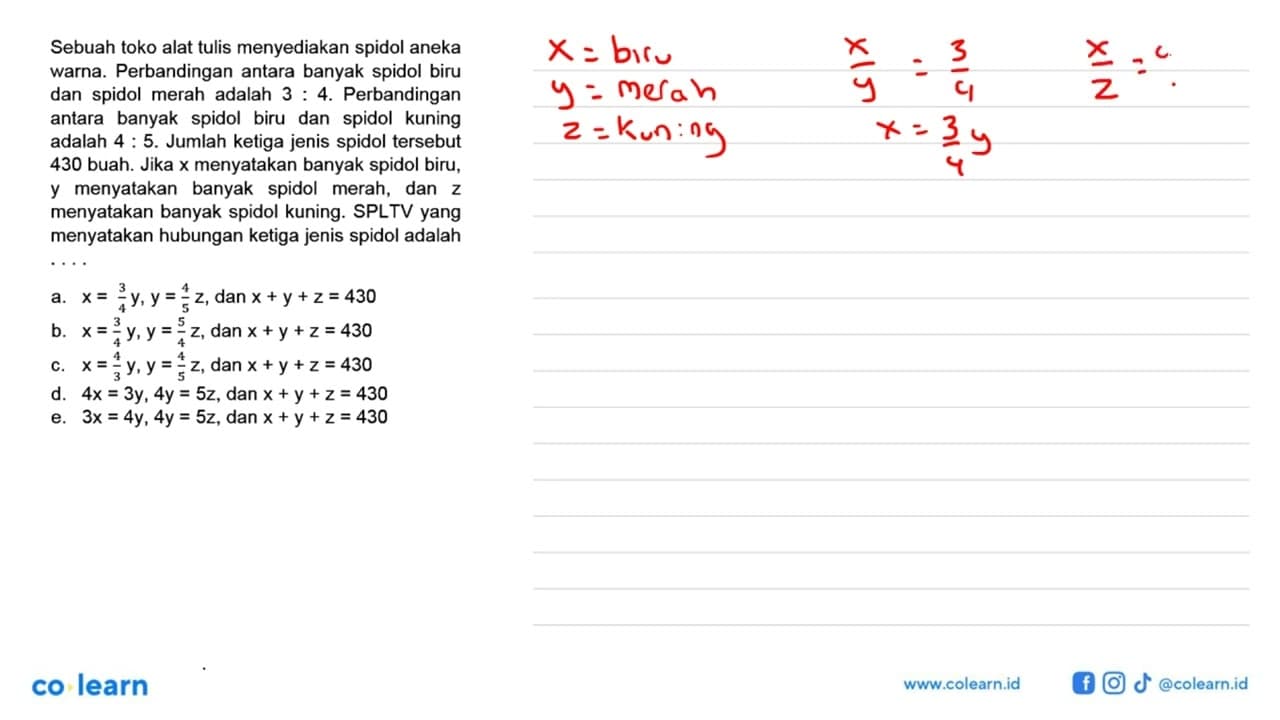 Sebuah toko alat tulis menyediakan spidol aneka
warna. Perbandingan antara banyak spidol biru
dan spidol merah adalah 3 : 4. Perbandingan
antara banyak spidol biru dan spidol kuning
adalah 4 : 5. Jumlah ketiga jenis spidol tersebut
430 buah. Jika x menyatakan banyak spidol biru,
y menyatakan banyak spidol merah, dan z
menyatakan banyak spidol kuning. SPLTV yang
menyatakan hubungan ketiga jenis spidol adalah
. . . .
a. x = 3/4 y, y = 4/5 z, dan x + y + z = 430
b. x = 3/4 y, y = 5/4 z, dan x + y + z = 430
c. x = 4/3 y, y = 4/5 z, dan x + y + z = 430
d. 4x = 3y, 4y = 5z, dan x + y + z = 430
e. 3x = 4y, 4y = 5z, dan x + y + z = 430
x = biru
y = merah
z = kuning
x/y = 3/4
x = 3/4 y
x/z =
co learn
www.colearn.id
@colearn.id